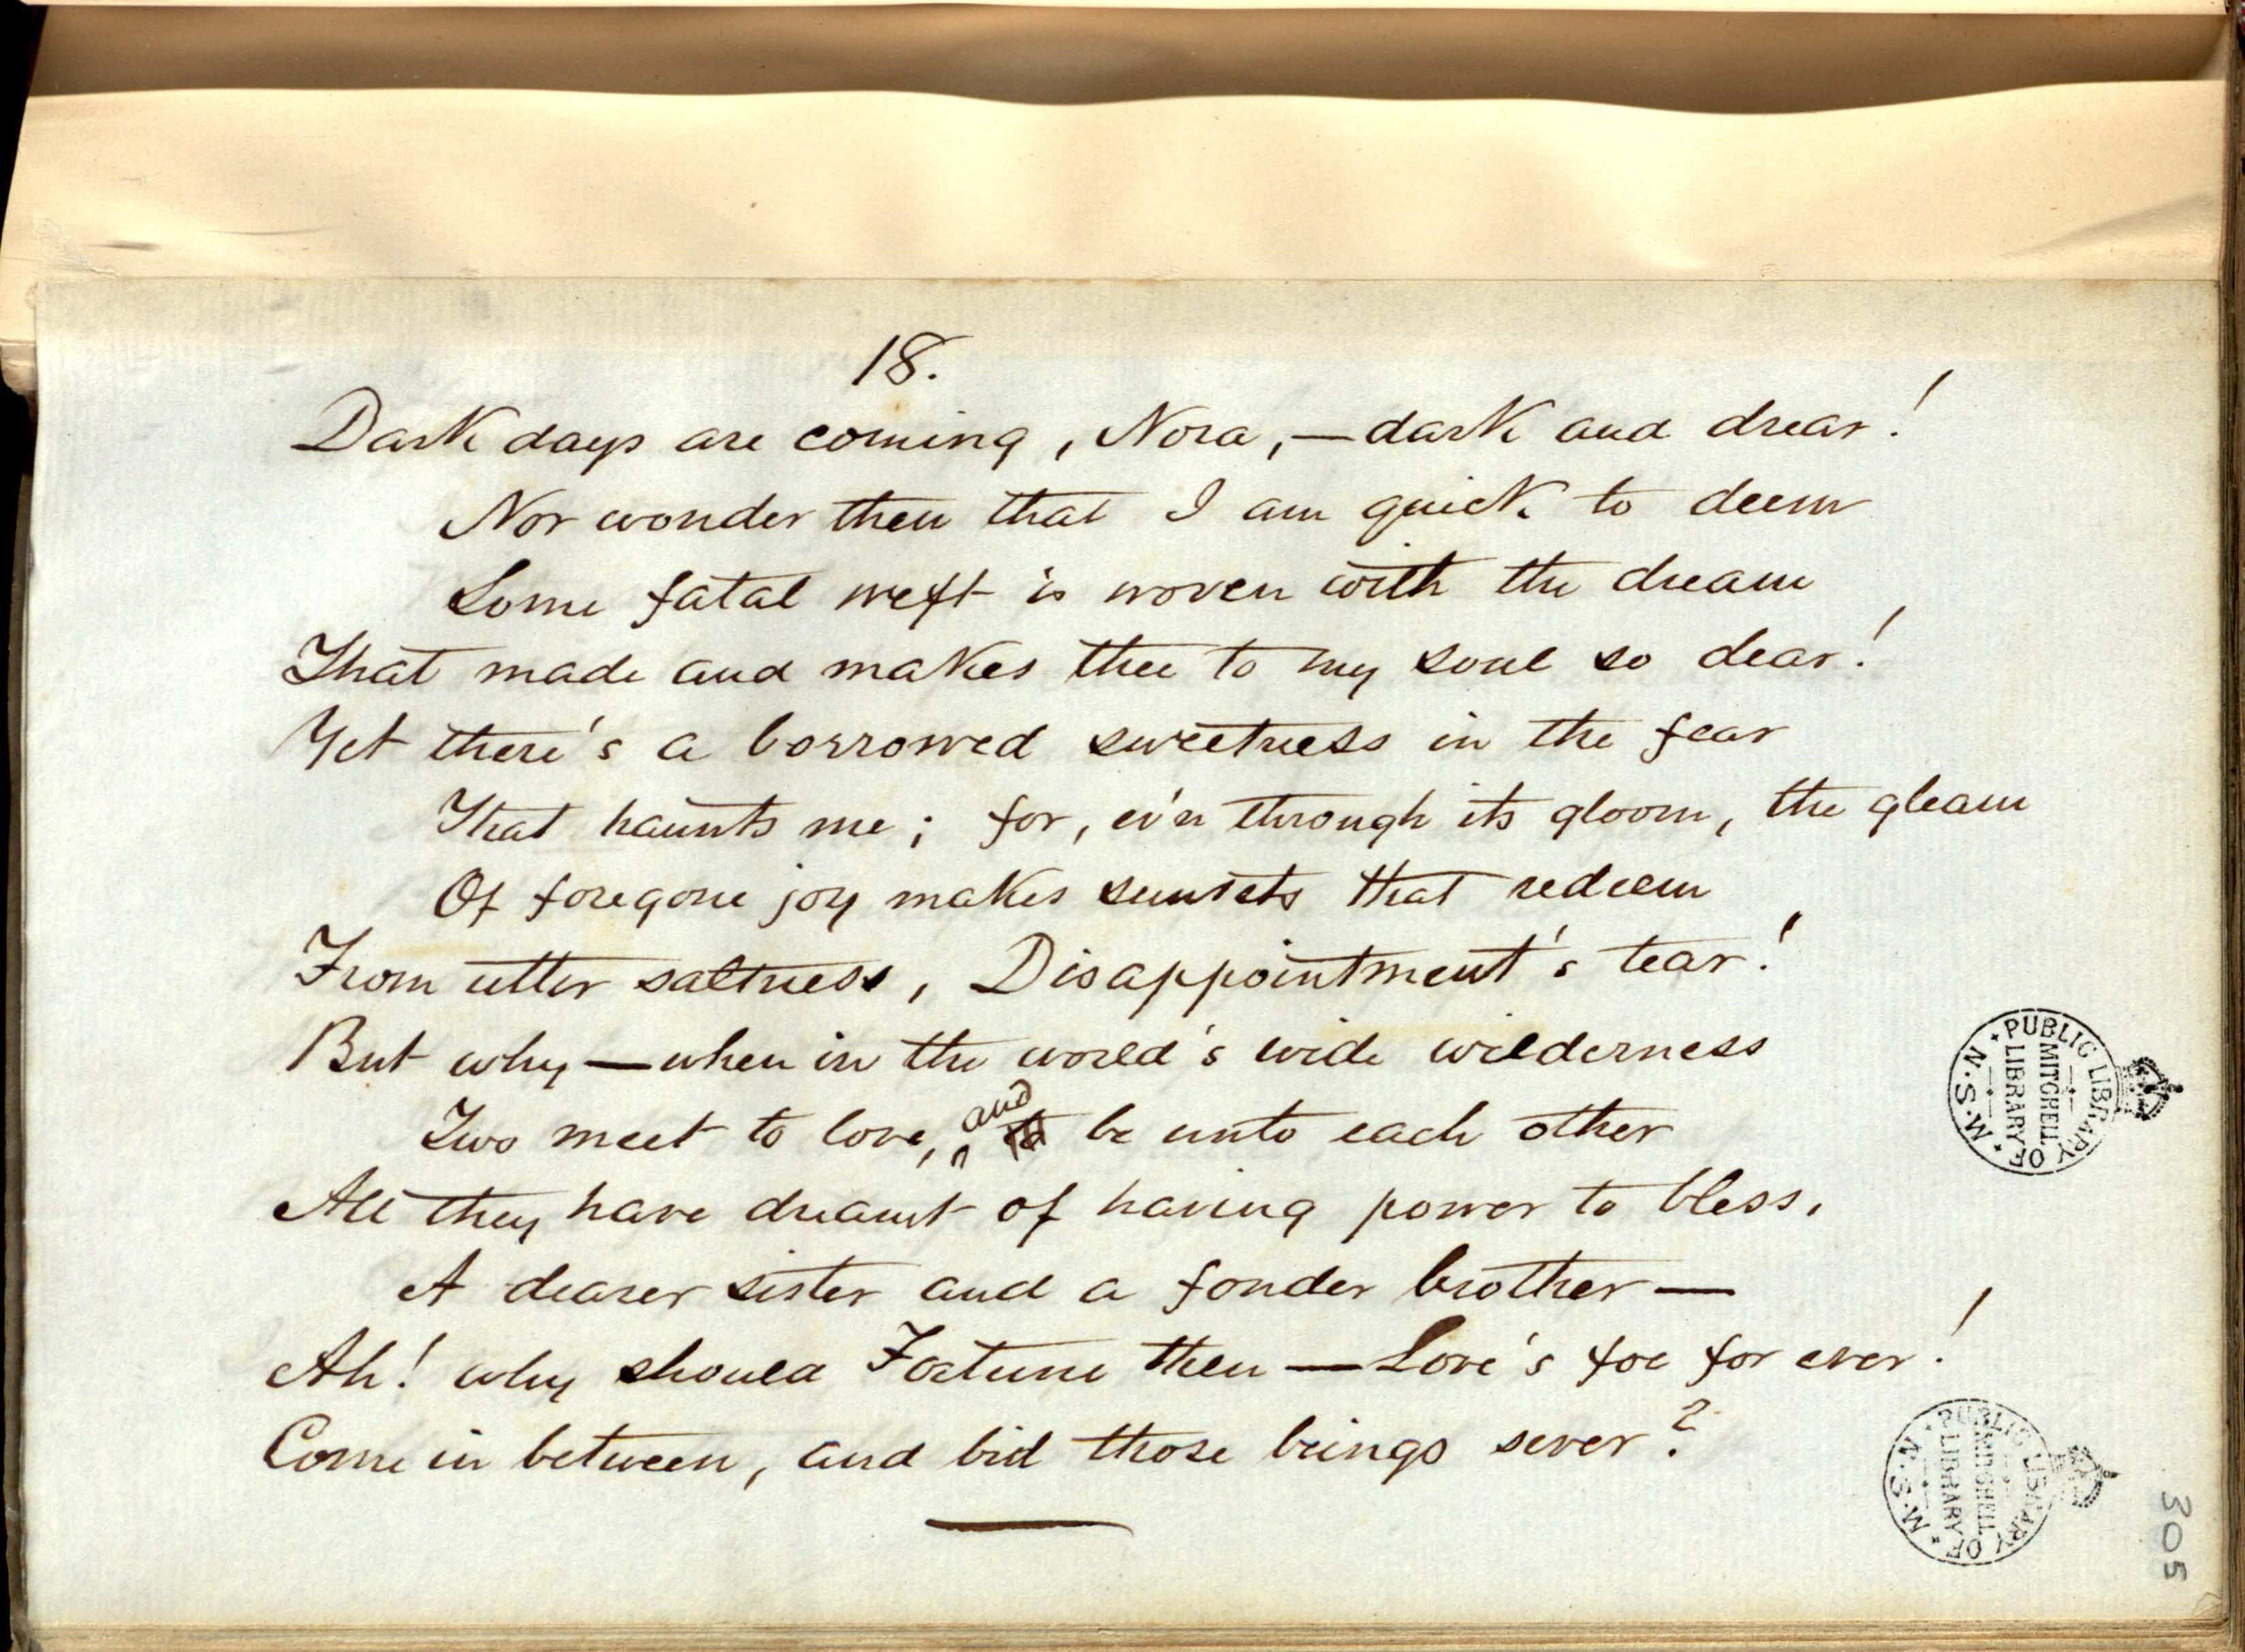 18.
Dark days are coming, Nora,—dark and drear!
Nor wonder then that I am quick to deem
Some fatal weft is woven with the dream
That made and makes thee to my soul so dear!
Yet there's a borrowed sweetness in the fear
That haunts me; for, ev'n through its gloom, the gleam
Of foregone joy makes sunsets that redeem
From utter saltness, Disappointment's tear!
But why—when in the world's wide wilderness
Two meet to love, and be unto each other
All they have dreamt of having power to bless,
A dearer sister and a fonder brother—
Ah! why should Fortune then—Love's foe for ever!
Come in between, and bid those beings sever?
PUBLIC LIBRARY OF N.S.W.
MITCHELL
LIBRARY
PUBLIC LIBRARY OF N.S.W.
MITCHELL
LIBRARY
305